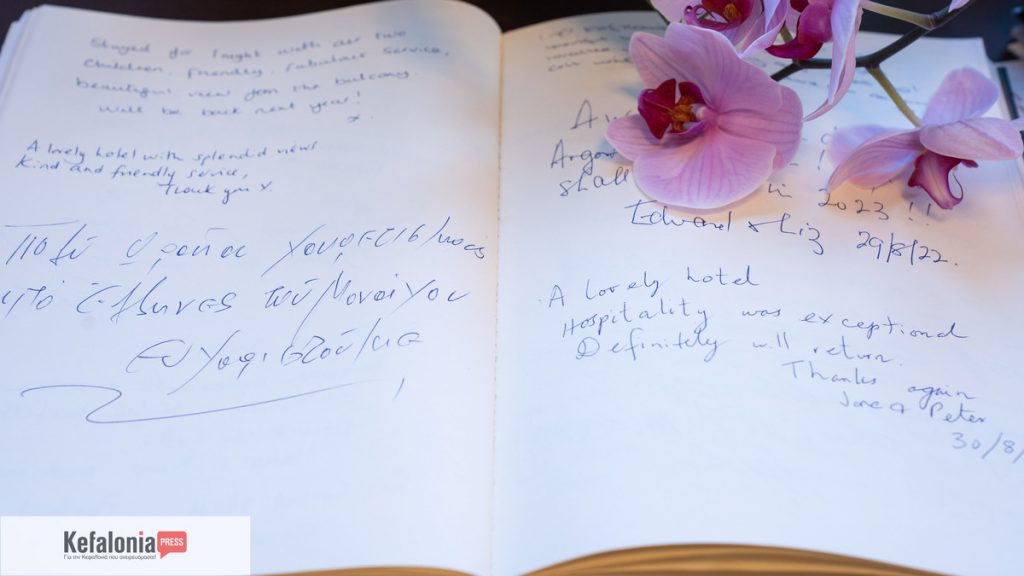 Stayed for 1 night with our two
children, friendly, fabulous service,
beautiful view from the balcony.
Will be back next year!
x.
A lovely hotel with splendid views
Kind and friendly service,
Thank you x.
Πολύ ωραίος
από Έλληνες του Μονάχου
Ευχαριστούμε
A
shall in 2023!!
Edward & Liz 29/8/22.
A lovely hotel
Hospitality was exceptional
Definitely will return.
Thanks again
Jane & Peter
30/8/
Kefalonia PRESS
Για την Κεφαλονιά που ονειρευόμαστε!